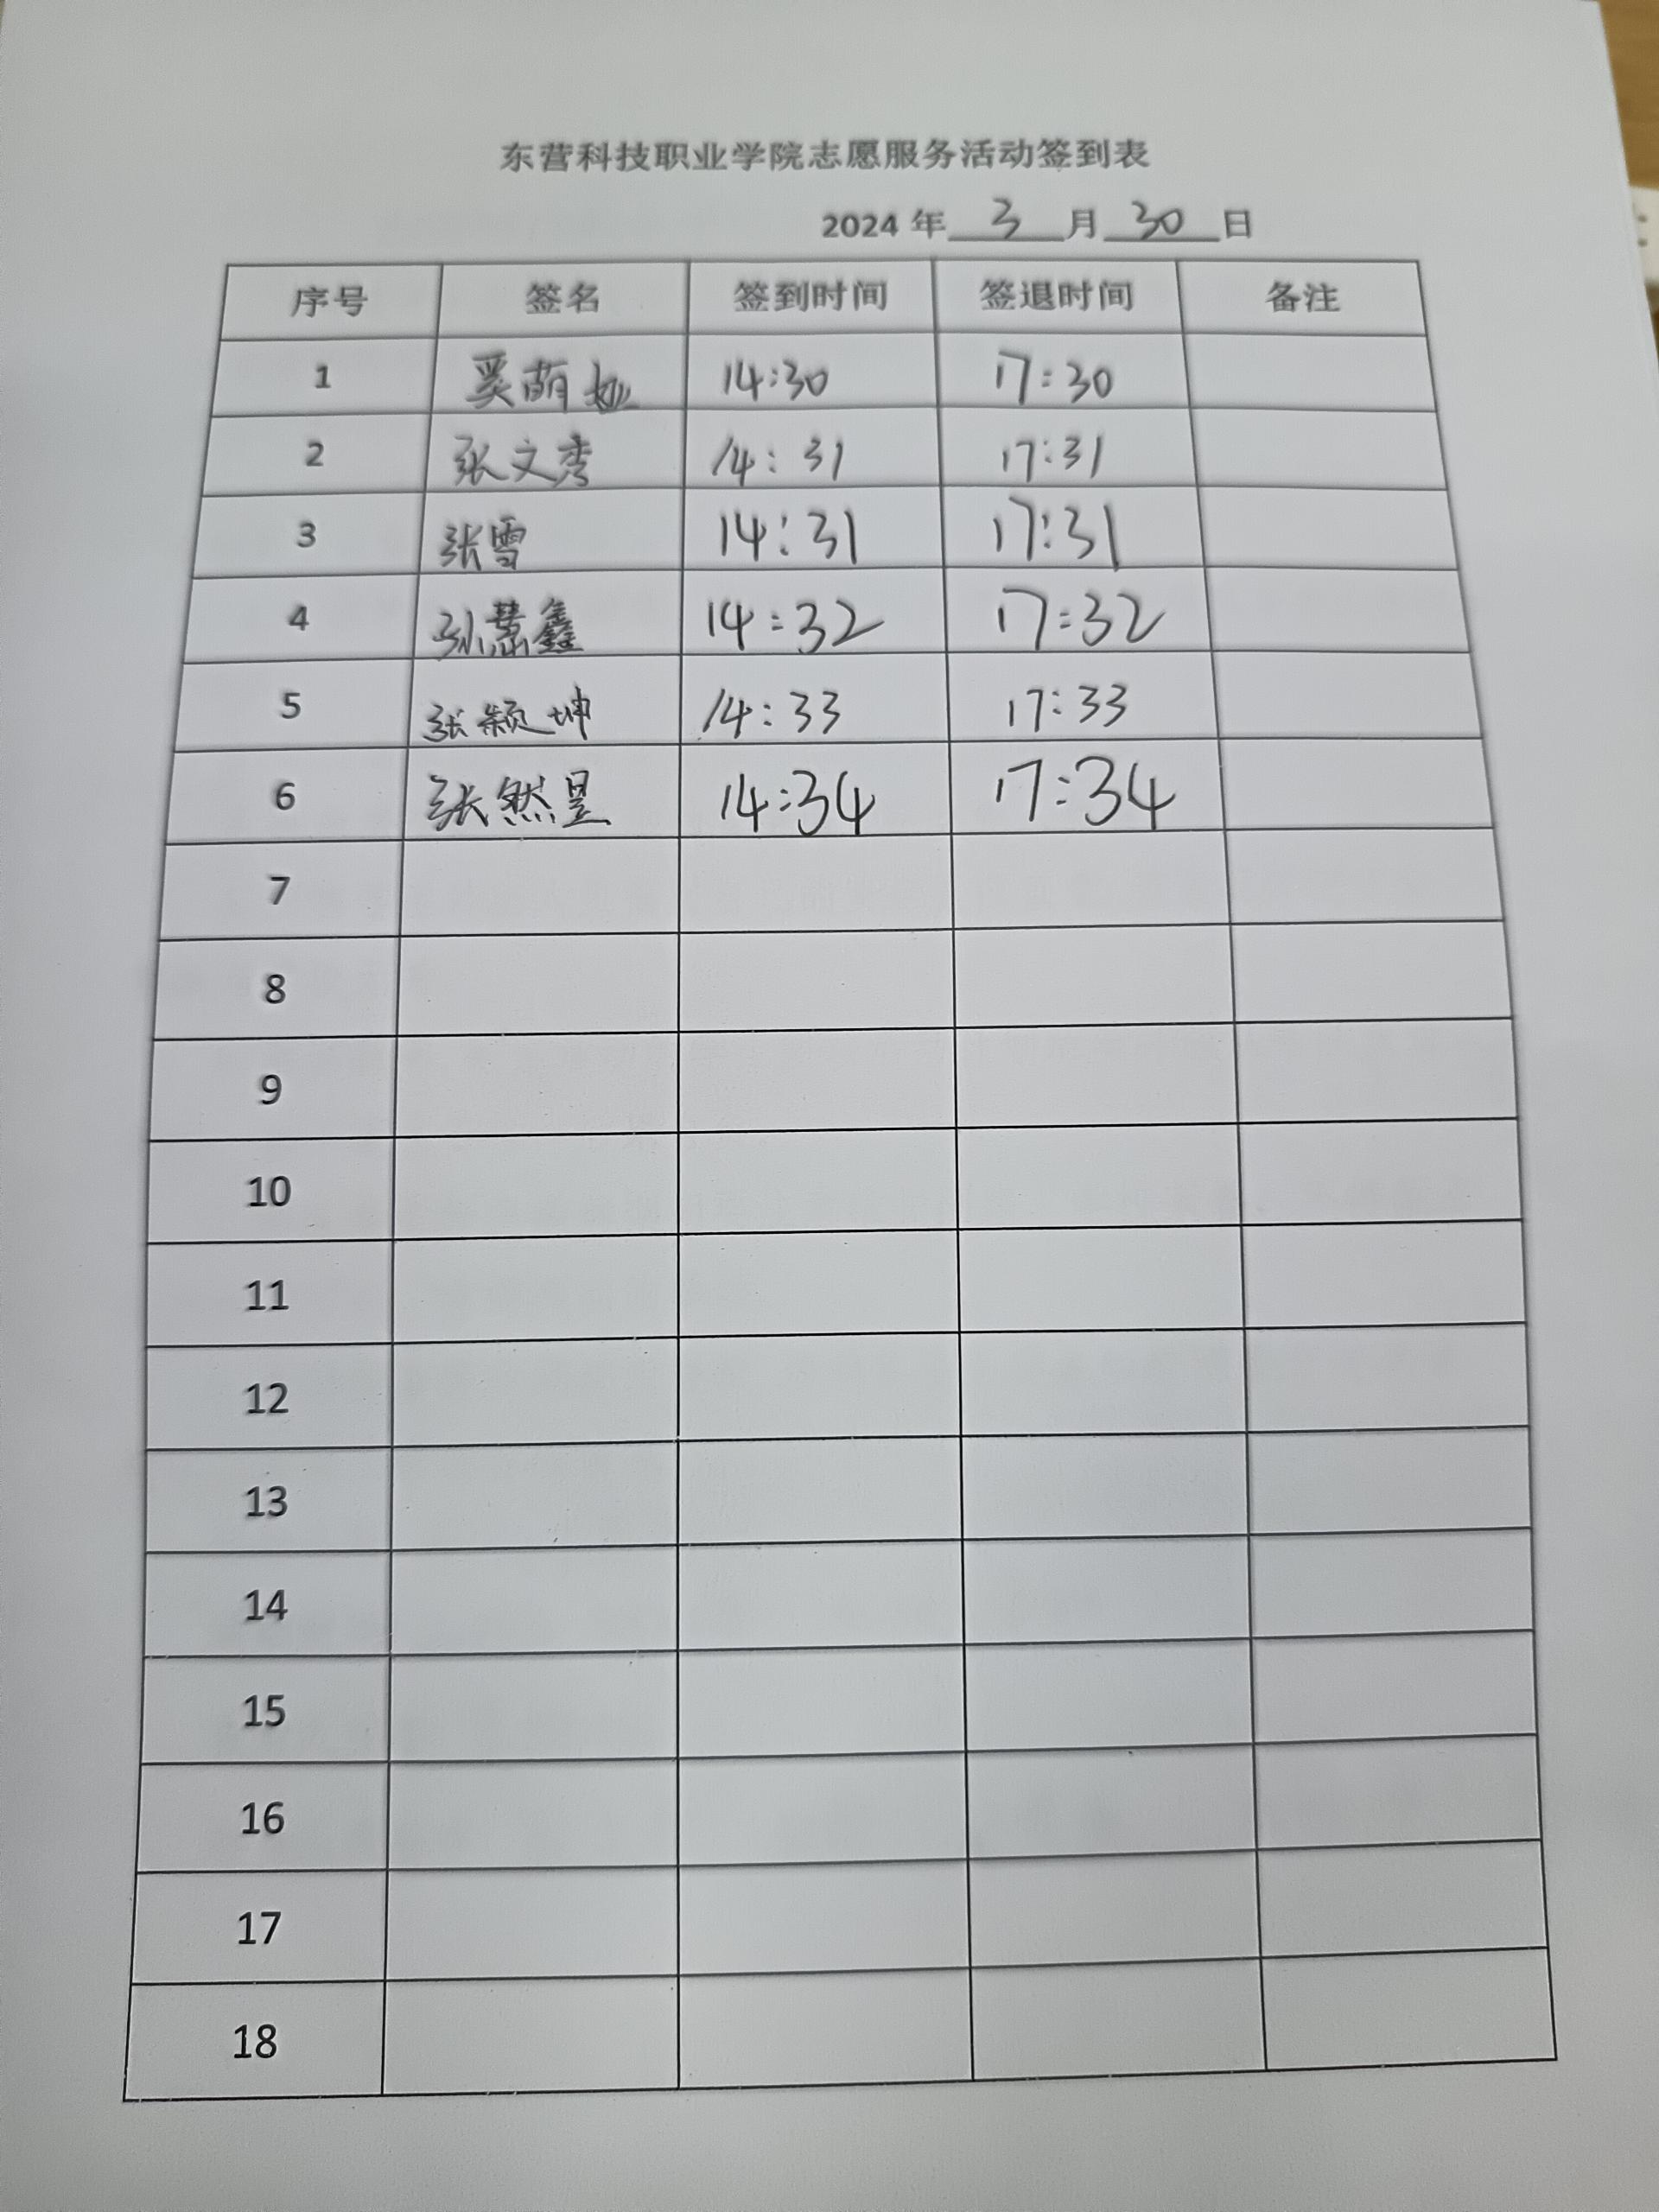 东营科技职业学院志愿服务活动签到表
2024 年 3 月 30 日
序号 签名 签到时间 签退时间 备注
1 奚萌娅 14:30 17:30
2 张文秀 14:31 17:31
3 张雪 14:31 17:31
4 孙慧鑫 14:32 17:32
5 张颖坤 14:33 17:33
6 张然昱 14:34 17:34
7
8
9
10
11
12
13
14
15
16
17
18